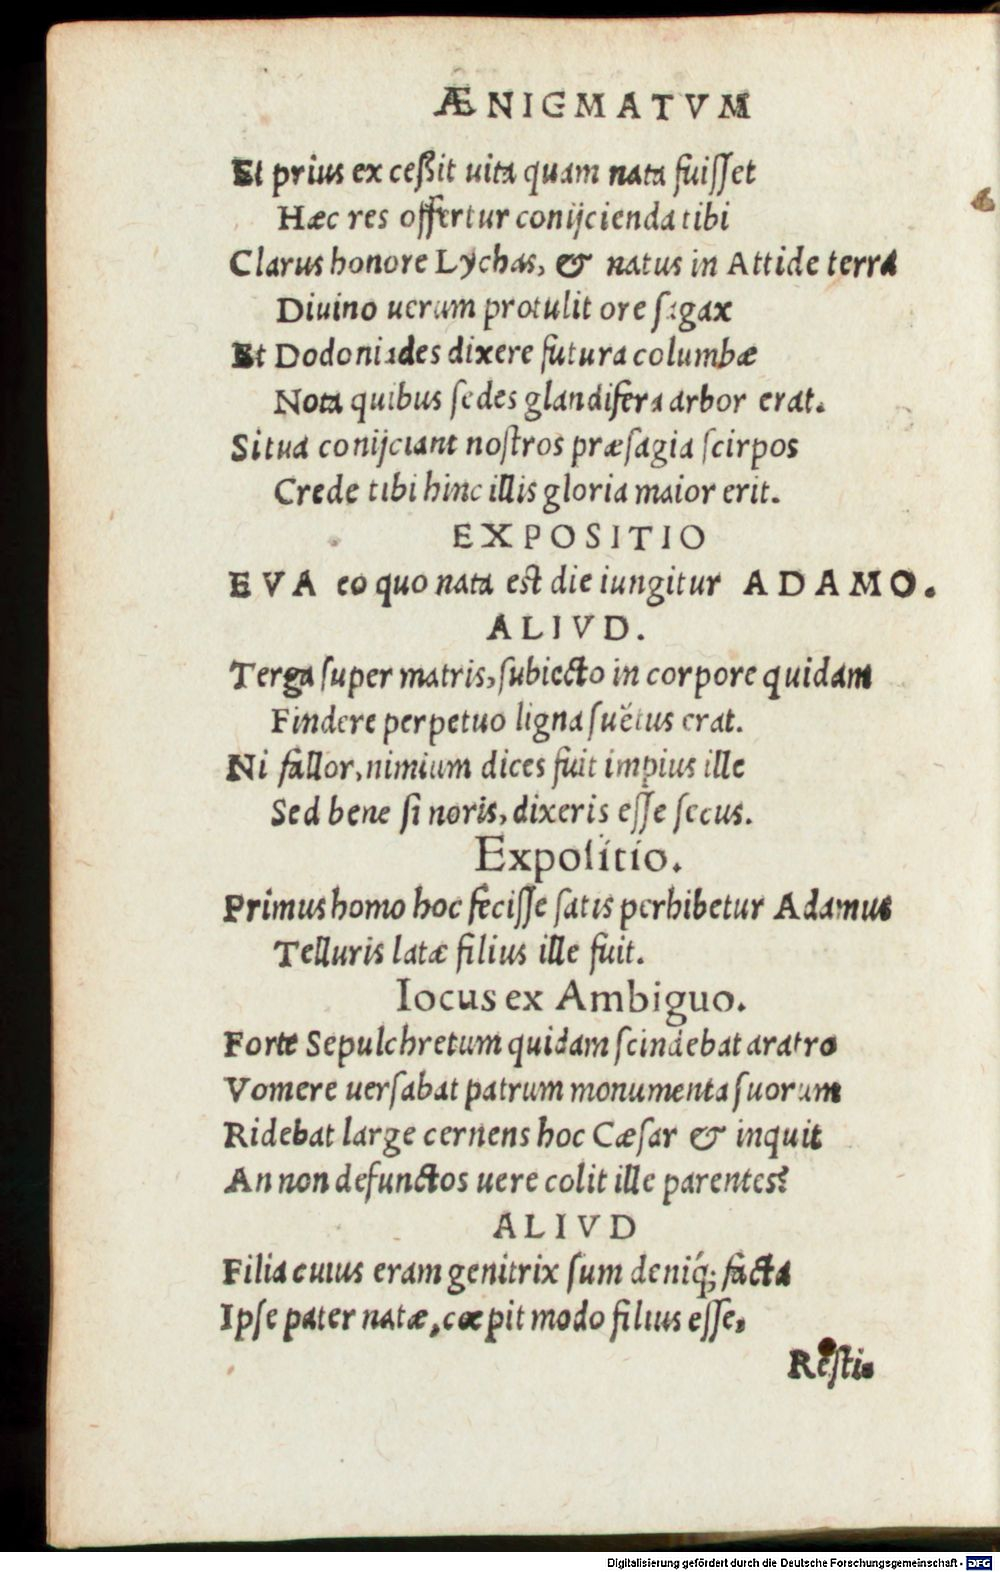 ÆNIGMATVM
Et prius ex ceßit uita quam nata fuiſſet
Hæc res offertur conijcienda tibi
Clarus honore Lychas, & natus in Attide terra
Diuino uerum protulit ore ſagax
Et Dodoniades dixere futura columbæ
Nota quibus ſedes glandifera arbor erat.
Si tua conijciant noſtros præſagia ſcirpos
Crede tibi hinc illis gloria maior erit.
EXPOSITIO
EVA eo quo nata est die iungitur ADAMO.
ALIVD.
Terga ſuper matris, ſubiecto in corpore quidam
Findere perpetuo ligna ſuëtus erat.
Ni fallor, nimium dices fuit impius ille
Sed bene ſi noris, dixeris eſſe ſecus.
Expoſitio.
Primus homo hoc feciſſe ſatis perhibetur Adamus
Telluris latæ filius ille fuit.
Iocus ex Ambiguo.
Forte Sepulchretum quidam ſcindebat aratro
Vomere uerſabat patrum monumenta ſuorum
Ridebat large cernens hoc Cæſar & inquit
An non defunctos uere colit ille parentes?
ALIVD
Filia cuius eram genitrix ſum deniq́; facta
Ipſe pater natæ, cœpit modo filius eſſe,
Reſti-
Digitalisierung gefördert durch die Deutsche Forschungsgemeinschaft - DFG